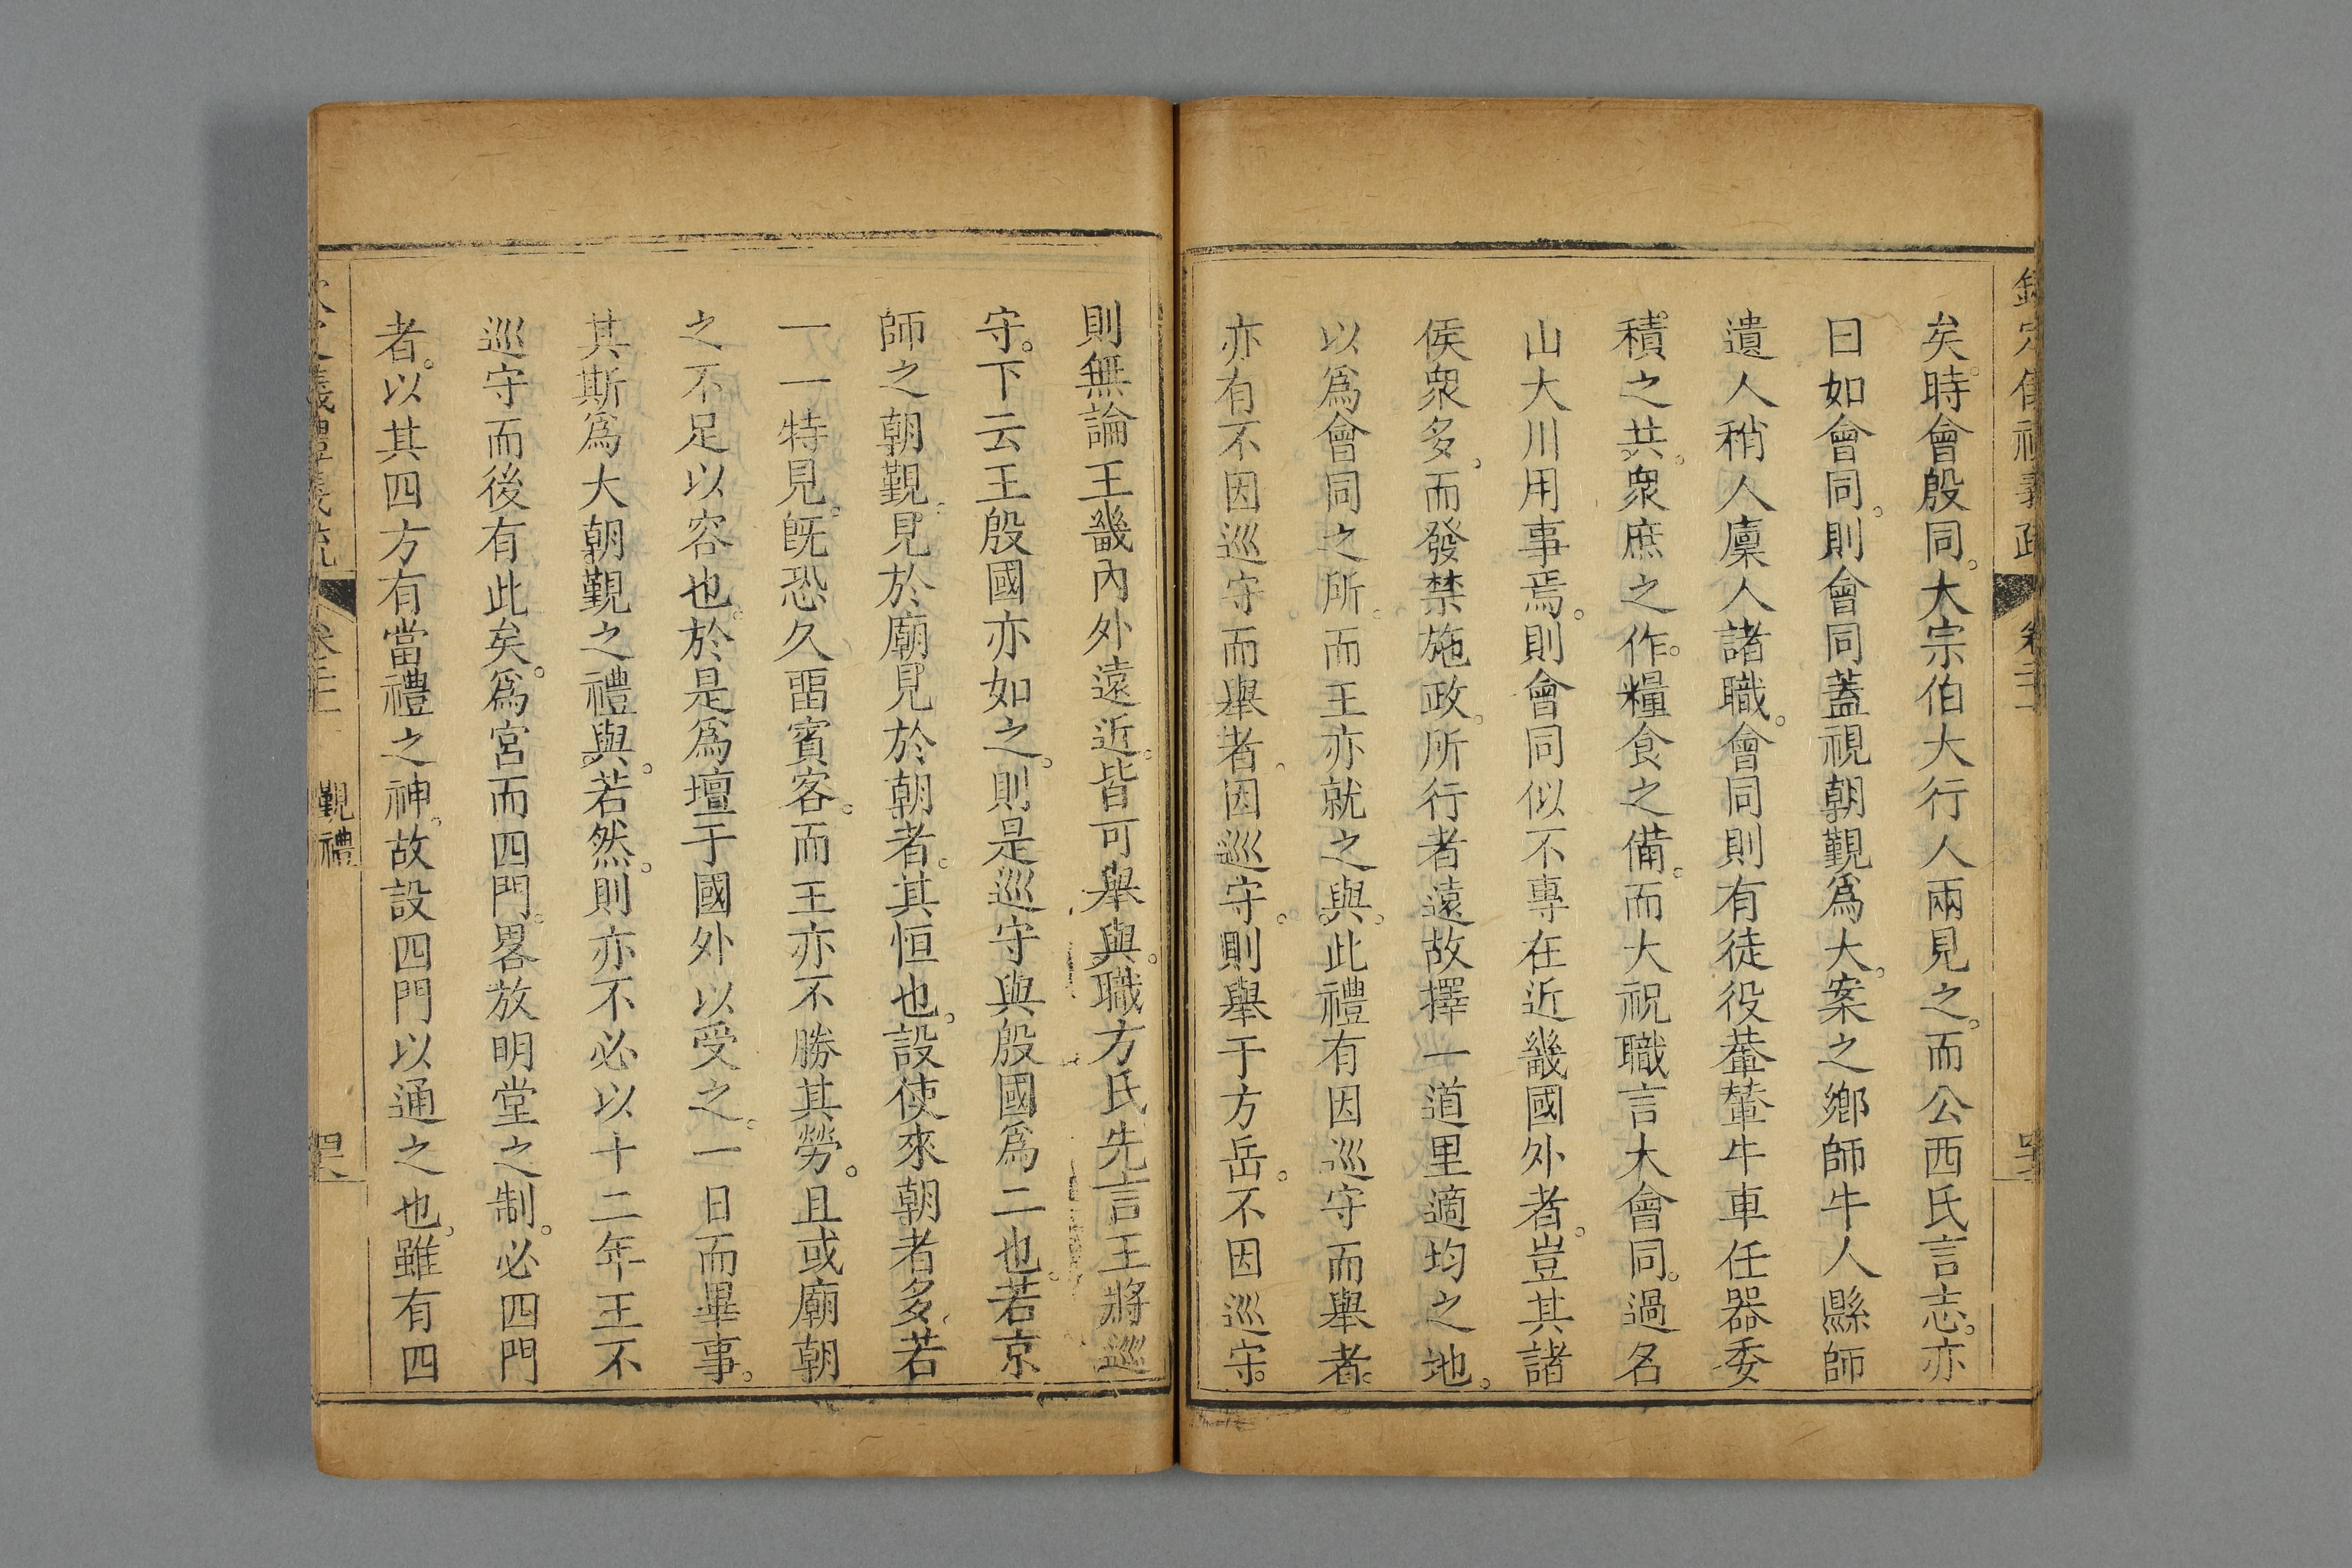 欽定儀禮義疏 卷二十
矣。時會殷同。大宗伯大行人兩見之。而公西氏言志。亦
曰如會同。則會同蓋視朝覲爲大。案之鄉師牛人縣師
遺人稍人廩人諸職。會同則有徒役輂輦牛車任器委
積之共。衆庶之作。糧食之備。而大祝職言大會同。過名
山大川用事焉。則會同似不專在近畿國外者。豈其諸
侯衆多。而發禁施政。所行者遠故擇一道里適均之地。
以爲會同之所。而王亦就之與。此禮有因巡守而舉者。
亦有不因巡守而舉者。因巡守。則舉于方岳。不因巡守。
則無論王畿內外遠近。皆可舉與。職方氏先言王將巡
守。下云王殷國亦如之。則是巡守與殷國爲二也。若京
師之朝覲。見於廟見於朝者。其恒也。設使來朝者多。若
一一特見。旣恐久畱賓客。而王亦不勝其勞。且或廟朝
之不足以容也。於是爲壇于國外以受之。一日而畢事。
其斯爲大朝覲之禮與。若然。則亦不必以十二年王不
巡守而後有此矣。爲宮而四門。畧放明堂之制。必四門
者。以其四方有當禮之神。故設四門以通之也。雖有四
覲禮